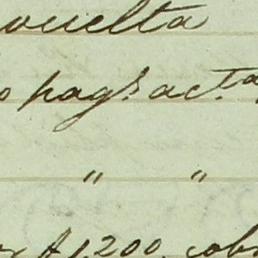 vuelta
o pags. act.ta
" "
1,200, cob